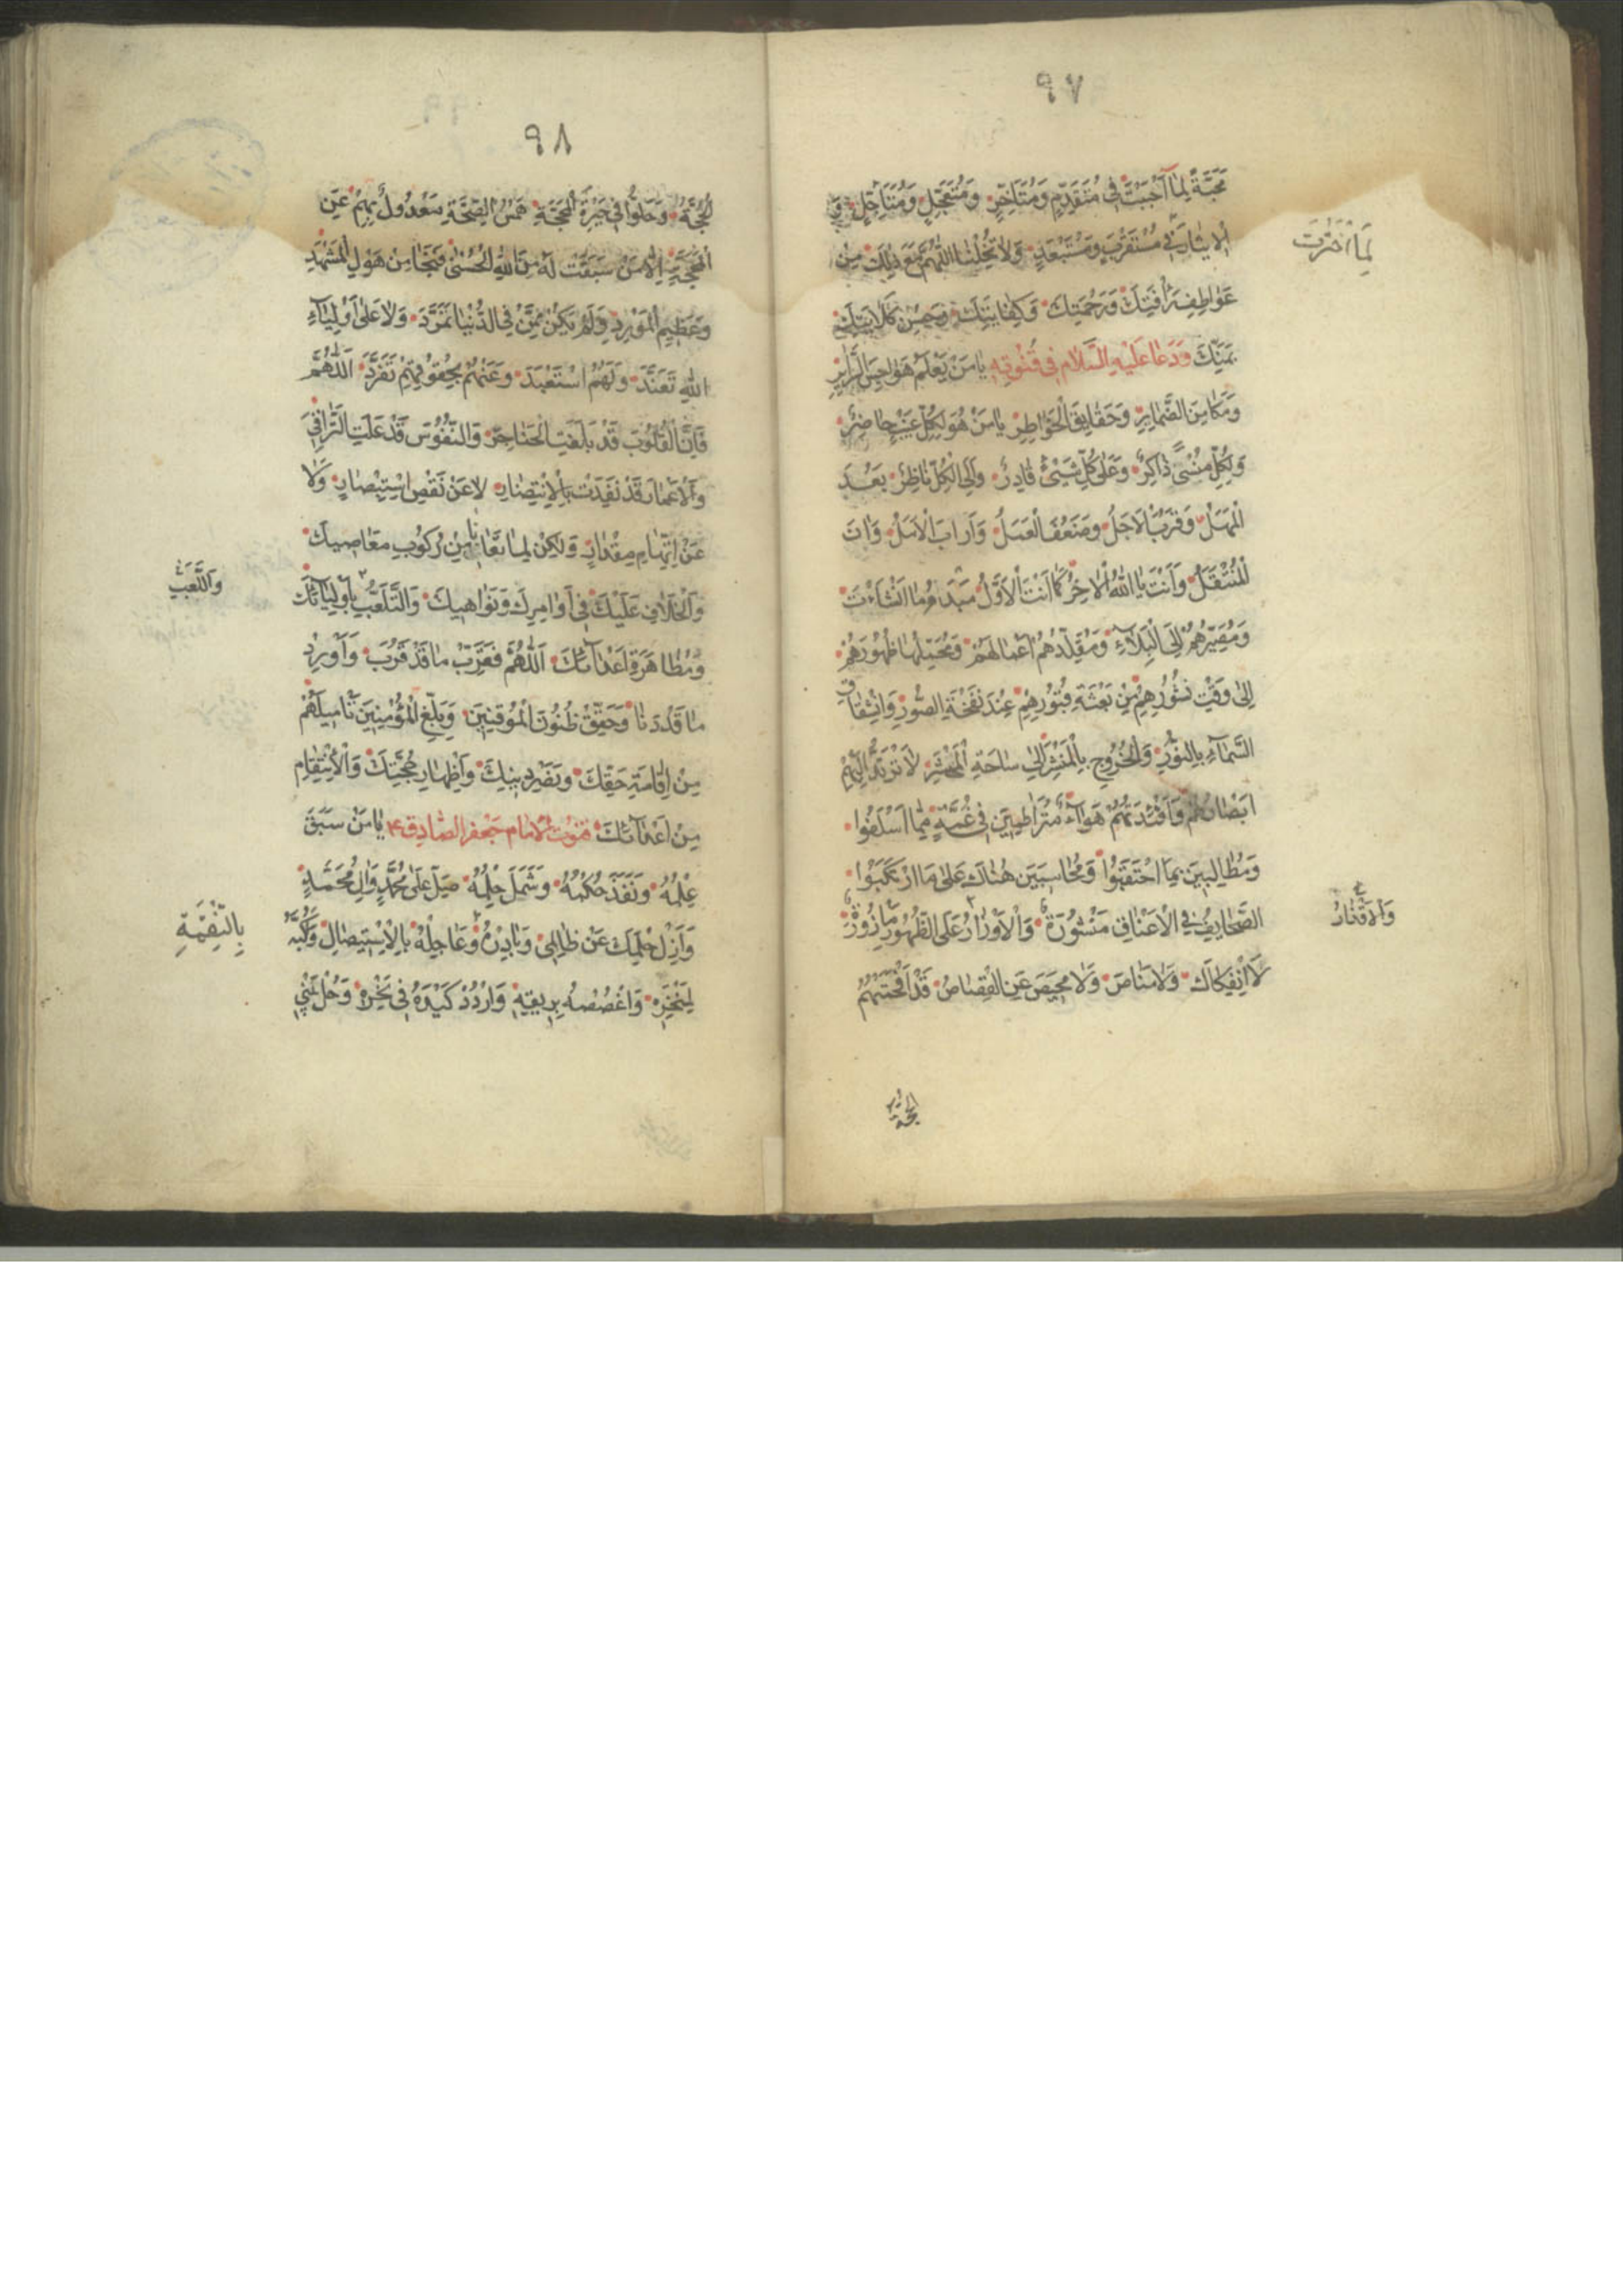 ٩٧
مَحَبَّةً لِمَا اَحْبَبْتَ فى مُتَقَدِّمٍ وَمُتَاَخِّرٍ وَمُتَعَجِّلٍ وَمُتَاَجِّلٍ وَ
الايثارَ فى مُسْتَقْرَبٍ وَمُسْتَبْعَدٍ وَلا تُخْلِنا اللّٰهُمَّ مَعَ ذٰلِكَ مِنْ
لِمَا اخْتَرْتَ
عَوٰاطِفِ رَأْفَتِكَ وَرَحْمَتِكَ وَكِفٰايَتِكَ وَحُسْنِ كَلاٰيَتِكَ
بِمَنِّكَ وَدَعٰا عَلَيْهِ السَّلٰام فى قُنُوتِهِ يٰا مَنْ يَعْلَمُ هَوٰاجِسَ السَّرٰايِرِ
وَمَكٰامِنَ الضَّمٰايِرِ وَحَقٰايِقَ الْخَوٰاطِرِ يٰا مَنْ هُوَ لِكُلِّ غَيْبٍ حٰاضِرٌ
وَلِكُلِّ مَنْسِىٍّ ذٰاكِرٌ وَعَلىٰ كُلِّ شَيْئٍ قٰادِرٌ وَاِلَى الْكُلِّ نٰاظِرٌ بَعُدَ
الْمَهَلُ وَقَرُبَ الْاَجَلُ وَضَعُفَ الْعَمَلُ وَاَرٰابَ الْاَمَلُ وَاٰنَ
الْمُنْتَقَلُ وَاَنْتَ يٰا اَللّٰهُ الْاٰخِرُ كَمٰا اَنْتَ الْاَوَّلُ مُبيدُ مٰا اَنْشَاْتَ
وَمُصَيِّرُهُمْ اِلَى الْبَلآءِ وَمُقَلِّدُهُمْ اَعْمٰالَهُمْ وَمُحَمِّلُهٰا ظُهُورَهُمْ
اِلىٰ وَقْتِ نُشُورِهِمْ مِنْ بَعْثَةِ قُبُورِهِمْ عِنْدَ نَفْخَةِ الصُّورِ وَانْشِقٰاقِ
السَّمٰآءِ بِالنُّورِ وَالْخُرُوجِ بِالْمَنْشَرِ اِلىٰ سٰاحَةِ الْمَحْشَرِ لٰا تَرْتَدُّ اِلَيْهِمْ
اَبْصٰارُهُمْ وَاَفْئِدَتُهُمْ هَوٰآءٌ مُتَرٰاطِمينَ فى غُمَّةٍ مِمّٰا اَسْلَفُوا
وَمُطٰالَبينَ بِمَا احْتَقَبُوا وَمُحٰاسَبينَ هُنٰاكَ عَلىٰ مَا ارْتَكَبُوا
الصَّحٰايِفُ فِى الْاَعْنٰاقِ مَنْشُورَةٌ وَالْاَوْزٰارُ عَلَى الظُّهُورِ مَأزُورَةٌ
لَا انْفِكٰاكَ وَلٰا مَنٰاصَ وَلٰا مَحيصَ عَنِ الْقِصٰاصِ قَدْ اَفْحَمَتْهُمُ
الحجة
٩٨
الْحُجَّةُ وَحَلُّوا فى حَيْرَةِ الْمَحَجَّةِ هَمْسُ الضَّجَّةِ مَعْدُولٌ بِهِمْ عَنِ
الْمَحَجَّةِ اِلّٰا مَنْ سَبَقَتْ لَهُ مِنَ اللّٰهِ الْحُسْنىٰ فَنَجٰا مِنْ هَوْلِ الْمَشْهَدِ
وَعَظيمِ الْمَوْرِدِ وَلَمْ يَكُنْ مِمَّنْ فِى الدُّنْيٰا تَمَرَّدَ وَلٰا عَلىٰ اَوْلِيٰآءِ
اللّٰهِ تَعَنَّدَ وَلَهُمُ اسْتَعْبَدَ وَعَنْهُمْ بِحُقُوقِهِمْ تَفَرَّدَ اَللّٰهُمَّ
فَاِنَّ الْقُلُوبَ قَدْ بَلَغَتِ الْحَنٰاجِرَ وَالنُّفُوسَ قَدْ عَلَتِ التَّرٰاقِىَ
وَالْاَعْمٰارَ قَدْ نَفِدَتْ بِالْاِنْتِصٰارِ لٰا عَنْ نَقْصِ اسْتِبْصٰارٍ وَلٰا
عَنِ اتِّهٰامِ مِقْدٰارٍ وَلٰكِنْ لِمٰا تُعٰانى مِنْ رُكُوبِ مَعٰاصيكَ
وَالْخِلٰافِ عَلَيْكَ فى اَوٰامِرِكَ وَنَوٰاهيكَ وَالتَّلَعُّبِ بِاَوْلِيٰآئِكَ
وَاللَّعِبِ
وَمُظٰاهَرَةِ اَعْدٰآئِكَ اَللّٰهُمَّ فَقَرِّبْ مٰا قَدْ قَرُبَ وَاَوْرِدْ
مٰا قَدْ دَنٰا وَحَقِّقْ ظُنُونَ الْمُوقِنينَ وَبَلِّغِ الْمُؤْمِنينَ تَأميلَهُمْ
مِنْ اِقٰامَةِ حَقِّكَ وَنَصْرِ دينِكَ وَاِظْهٰارِ حُجَّتِكَ وَالْاِنْتِقٰامِ
مِنْ اَعْدٰآئِكَ قنوت الامام جَعْفَر الصّٰادِق ع يٰا مَنْ سَبَقَ
عِلْمُهُ وَنَفَذَ حُكْمُهُ وَشَمَلَ حِلْمُهُ صَلِّ عَلىٰ مُحَمَّدٍ وَاٰلِ مُحَمَّدٍ
وَاَزِلْ حِلْمَكَ عَنْ ظٰالِمى وَبٰادِرْهُ وَعٰاجِلْهُ بِالْاِسْتيصٰالِ وَكُبَّهُ
بِالنَّقِمَةِ
لِمَنْخَرِهِ وَاغْصُصْهُ بِريقِهِ وَارْدُدْ كَيْدَهُ فى نَحْرِهِ وَحُلْ بَيْنى